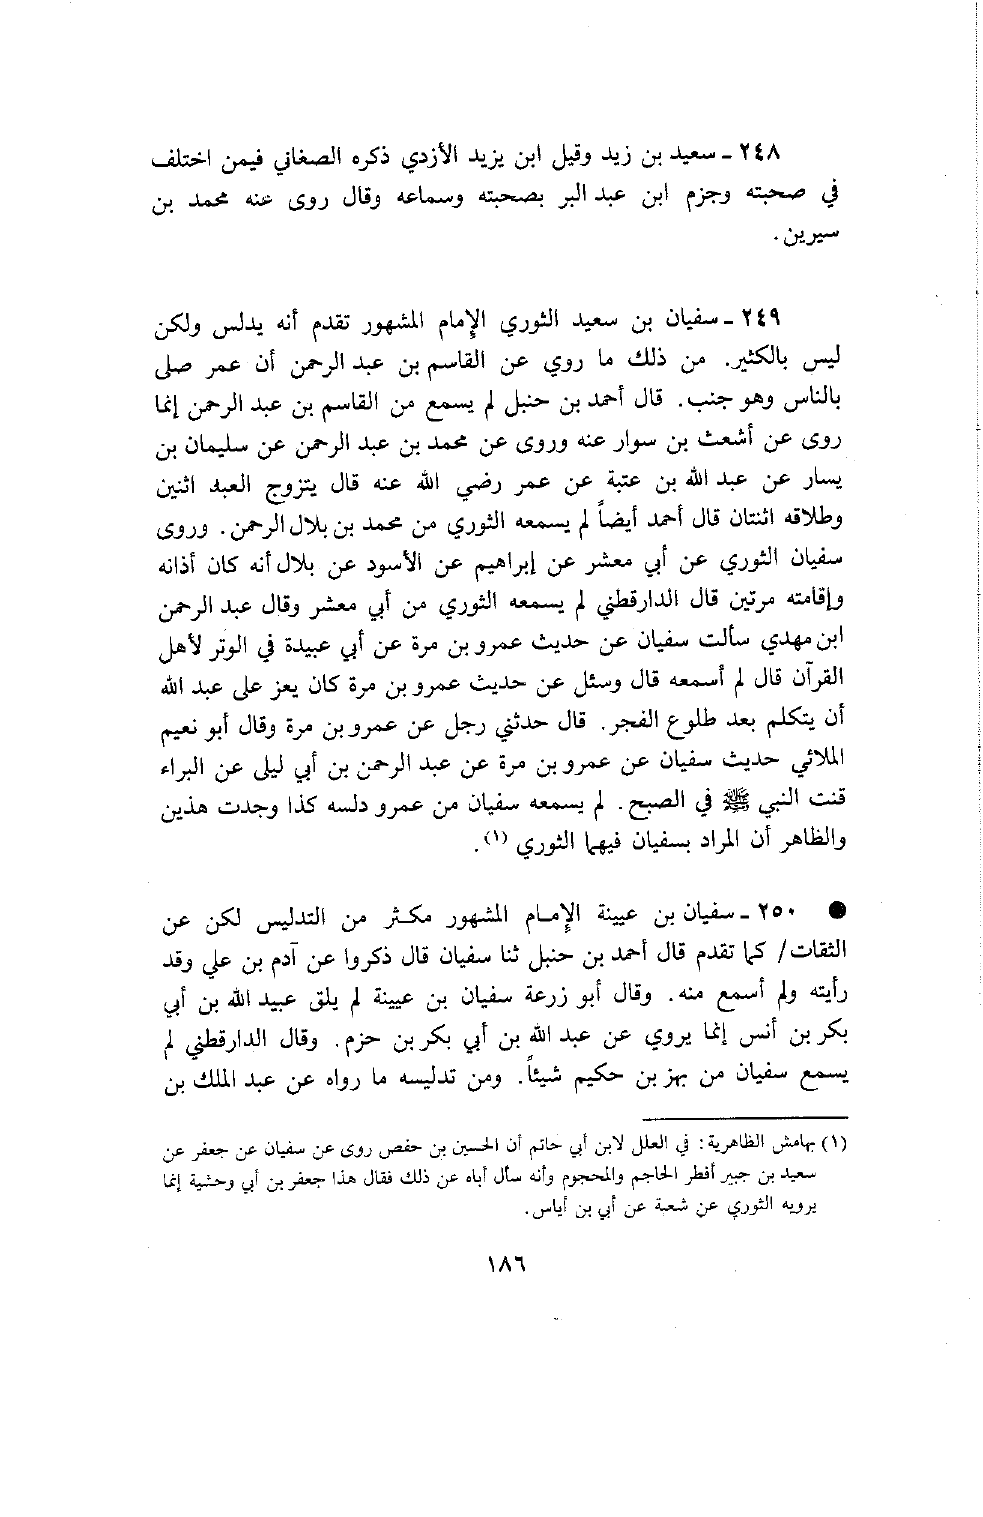 ٢٤٨ ـ سعيد بن زيد وقيل ابن يزيد الأزدي ذكره الصغاني فيمن اختلف
في صحبته وجزم ابن عبد البر بصحبته وسماعه وقال روى عنه محمد بن
سيرين.
٢٤٩ ـ سفيان بن سعيد الثوري الإمام المشهور تقدم أنه يدلس ولكن
ليس بالكثير. من ذلك ما روي عن القاسم بن عبد الرحمن أن عمر صلى
بالناس وهو جنب. قال أحمد بن حنبل لم يسمع من القاسم بن عبد الرحمن إنما
روى عن أشعث بن سوار عنه وروى عن محمد بن عبد الرحمن عن سليمان بن
يسار عن عبد الله بن عتبة عن عمر رضي الله عنه قال يتزوج العبد اثنين
وطلاقه اثنتان قال أحمد أيضاً لم يسمعه الثوري من محمد بن بلال الرحمن. وروى
سفيان الثوري عن أبي معشر عن إبراهيم عن الأسود عن بلال أنه كان أذانه
وإقامته مرتين قال الدارقطني لم يسمعه الثوري من أبي معشر وقال عبد الرحمن
ابن مهدي سألت سفيان عن حديث عمرو بن مرة عن أبي عبيدة في الوتر لأهل
القرآن قال لم أسمعه قال وسئل عن حديث عمرو بن مرة كان يعز على عبد الله
أن يتكلم بعد طلوع الفجر. قال حدثني رجل عن عمرو بن مرة وقال أبو نعيم
الملائي حديث سفيان عن عمرو بن مرة عن عبد الرحمن بن أبي ليلى عن البراء
قنت النبي ﷺ في الصبح. لم يسمعه سفيان من عمرو دلسه كذا وجدت هذين
والظاهر أن المراد بسفيان فيهما الثوري (١).
● ٢٥٠ ـ سفيان بن عيينة الإمام المشهور مكثر من التدليس لكن عن
الثقات/ كما تقدم قال أحمد بن حنبل ثنا سفيان قال ذكروا عن آدم بن علي وقد
رأيته ولم أسمع منه. وقال أبو زرعة سفيان بن عيينة لم يلق عبيد الله بن أبي
بكر بن أنس إنما يروي عن عبد الله بن أبي بكر بن حزم. وقال الدارقطني لم
يسمع سفيان من بهز بن حكيم شيئاً. ومن تدليسه ما رواه عن عبد الملك بن
(١) بهامش الظاهرية: في العلل لابن أبي حاتم أن الحسين بن حفص روى عن سفيان عن جعفر عن
سعيد بن جبير أفطر الحاجم والمحجوم وأنه سأل أباه عن ذلك فقال هذا جعفر بن أبي وحشية إنما
يرويه الثوري عن شعبة عن أبي بن أياس.
١٨٦